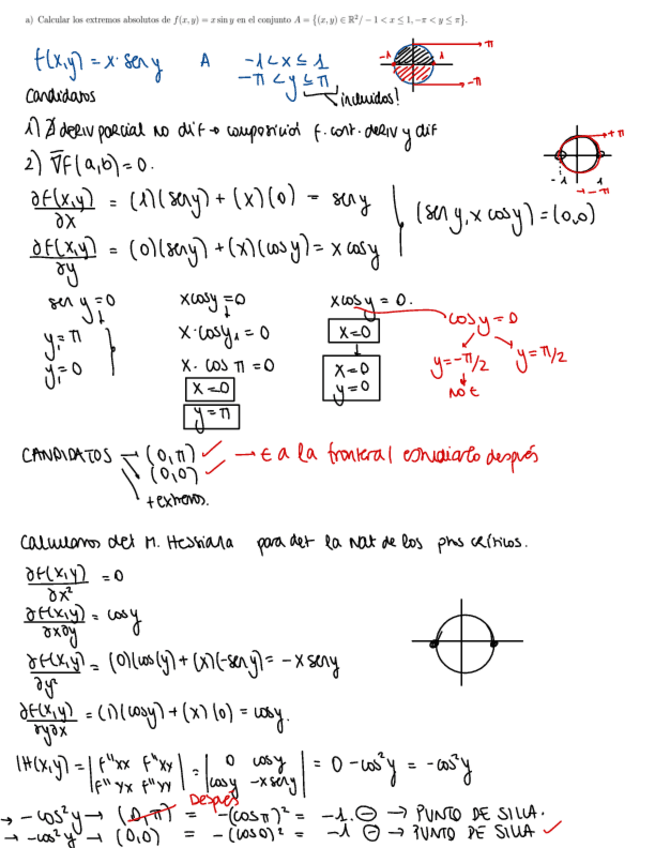 a) Calcular los extremos absolutos de f(x,y) = x sin y en el conjunto A = {(x,y) ∈ ℝ²/ − 1 < x ≤ 1, −π < y ≤ π}.
f(x,y) = x · sen y A -1 < x ≤ 1
-π < y ≤ π
incluidos!
-1 1 π -π
Candidatos
1) ∄ deriv parcial no dif → composición f. cont. deriv y dif
2) ∇f(a,b) = 0.
+π
-1 1
-π
∂f(x,y)/∂x = (1)(sen y) + (x)(0) = sen y
(sen y, x cos y) = (0,0)
∂f(x,y)/∂y = (0)(sen y) + (x)(cos y) = x cos y
sen y = 0 x cos y = 0 x cos y = 0.
cos y = 0
y₁ = π x · cos y₁ = 0 x = 0
y₁ = 0 x · cos π = 0 x = 0 y = -π/2 y = π/2
x = 0 y = 0 NO ∈
y = π
CANDIDATOS → (0,π) ✓ → ∈ a la frontera! estudiarlo después
(0,0) ✓
+ extremos.
Calculamos det M. Hessiana para det la Nat de los ptos críticos.
∂f(x,y)/∂x² = 0
∂f(x,y)/∂x∂y = cos y
∂f(x,y)/∂y² = (0)(cos(y) + (x)(-sen y) = -x sen y
∂f(x,y)/∂y∂x = (1)(cos y) + (x)(0) = cos y.
|H(x,y) = |f''xx f''xy| = |0 cos y| = 0 - cos² y = -cos² y
|f''yx f''yy| |cos y -x sen y|
Después
→ -cos² y → (0,π) = -(cos π)² = -1. ⊖ → PUNTO DE SILLA.
→ -cos² y → (0,0) = -(cos 0)² = -1 ⊖ → PUNTO DE SILLA ✓